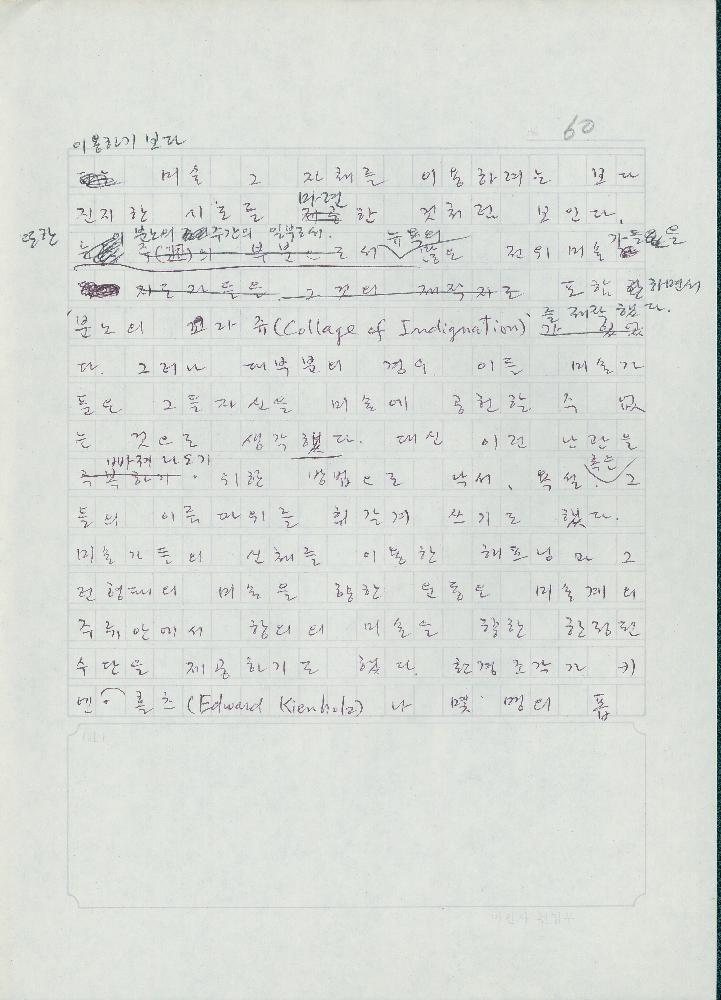 60
이용하기 보다
미술 그 자체를 이용하려는 보다
마련
진지한 시도를 제공한 것처럼 보인다.
또한 분노의 주간의 일부로서. 뉴욕의
주(週)의 부분으로서 많은 전위 미술가들을
포함하면서
를 제작했다.
'분노의 꼬라쥬(Collage of Indignation)'
다. 그러나 대부분의 경우 이들 미술가
들은 그들 자신을 미술에 공헌할 수 없
는 것으로 생각했다. 대신 이런 난관을
빠져 나오기 혹은
극복하기 위한 방법으로 낙서, 욕설, 그
들의 이름 따위를 휘갈겨 쓰기도 했다.
미술가들의 신체를 이용한 해프닝과 그
런 형태의 미술을 향한 운동은 미술계의
주류 안에서 항의의 미술을 향한 한정된
수단을 제공하기도 했다. 환경 조각가 키
엔홀츠(Edward Kienholz)나 몇 명의 폽